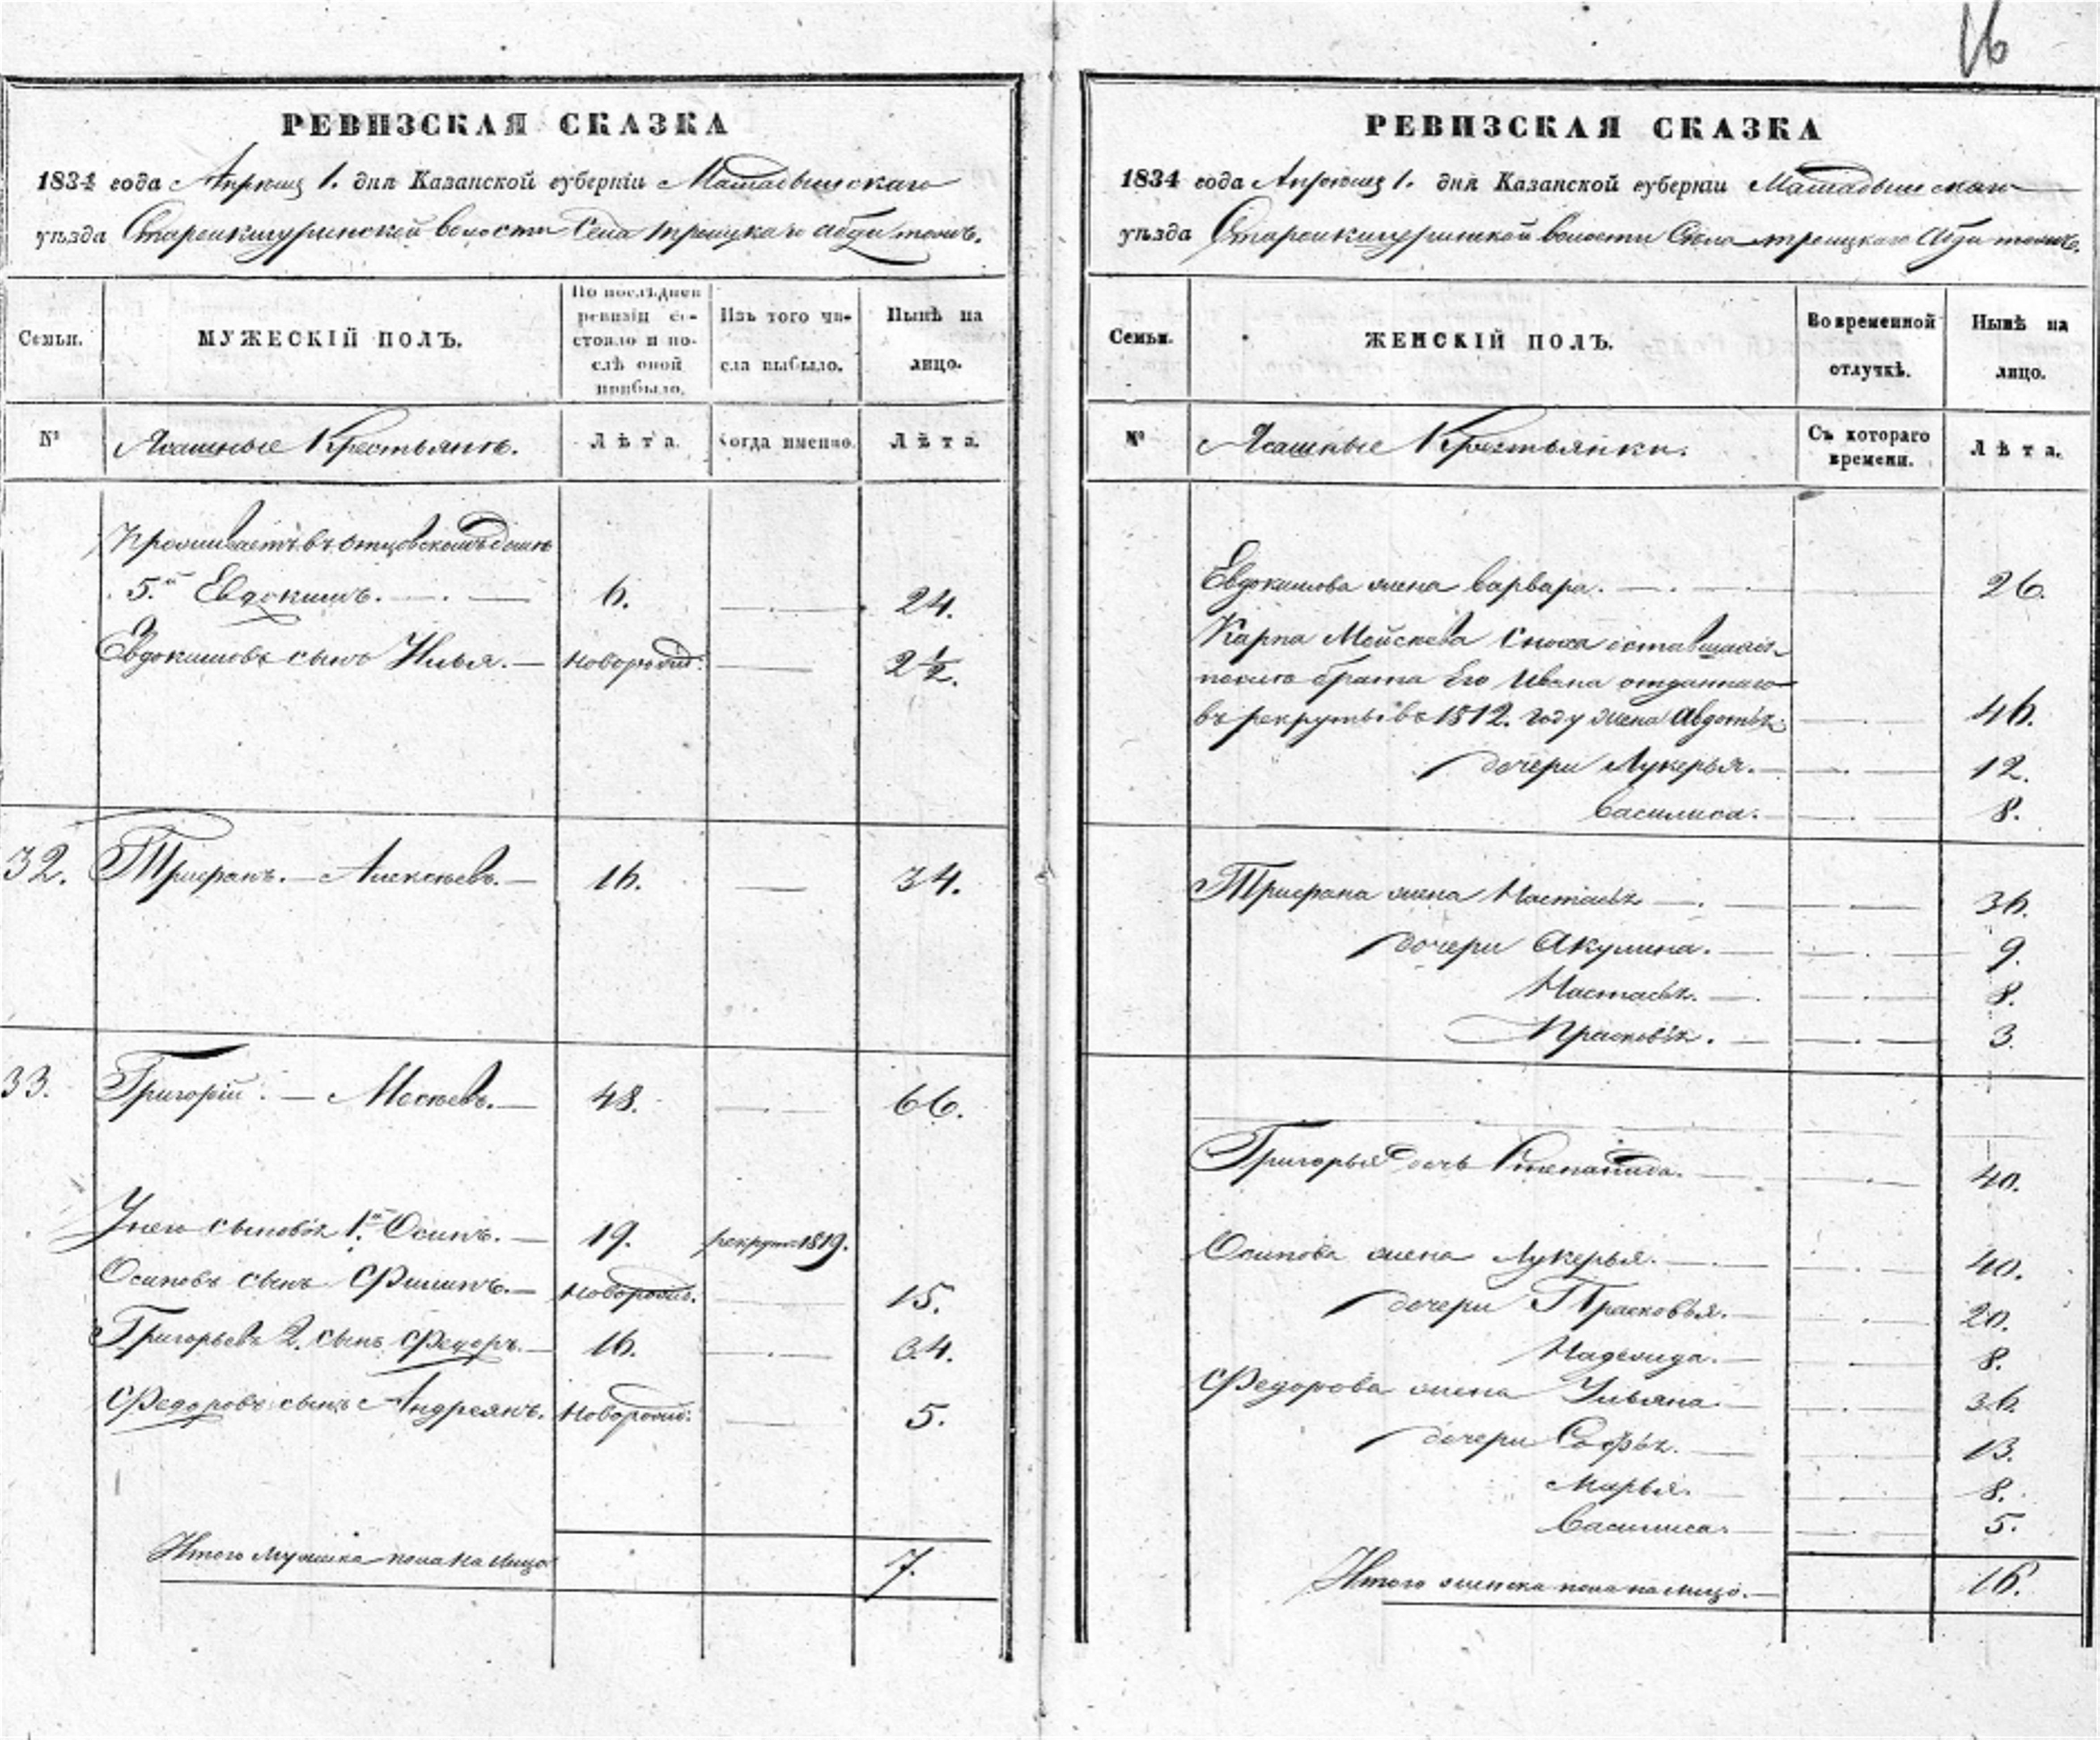 16
РЕВИЗСКАЯ СКАЗКА
1834 года Апреля 1. дня Казанской губернiи Мамадышскаго
уѣзда Старошкигуринской волости Села троицкаго тожъ.
Семьи.
МУЖЕСКIЙ ПОЛЪ.
По послѣдней ревизiи состояло и послѣ оной прибыло.
Изъ того числа выбыло.
Нынѣ на лицо.
№
Ясашные Крестьяне.
Лѣта.
Когда именно.
Лѣта.
Проживаетъ въ отцовскомъ домѣ
5.й Евдокимъ. 6. 24.
Евдокимовъ сынъ Илья. новорожд: 2 1/2.
32. Трифанъ. Алексѣевъ. 16. 34.
33. Григорiй. Мосѣевъ. 48. 66.
У него сыновья 1.й Осипъ. 19. рекрут: 1819.
Осиповъ сынъ Филипъ. Новорожд. 15.
Григорьевъ 2. сынъ Федоръ. 16. 34.
Федоровъ сынъ Андреянъ. Новорожд: 5.
Итого мужеска пола на лицо 7.
РЕВИЗСКАЯ СКАЗКА
1834 года Апреля 1. дня Казанской губернiи Мамадышскаго
уѣзда волости Села троицкаго тожъ.
Семьи.
ЖЕНСКIЙ ПОЛЪ.
Во временной отлучкѣ.
Нынѣ на лицо.
№
Ясашные Крестьянки.
Съ котораго времени.
Лѣта.
Евдокимова жена варвара. 26.
Карпа Мойсеева сноха оставшаяся
послѣ брата Его Ивана отданнаго
въ рекруты въ 1812. году жена Авдотья 46.
дочери Лукерья. 12.
василиса. 8.
Трифана жена Настасья 36.
дочери Акулина. 9.
Настасья. 8.
Прасковья. 3.
Григорья дочь Степанида. 40.
Осипова жена Лукерья. 40.
дочери Прасковья. 20.
Надежда. 8.
Федорова жена Ульяна 36.
дочери Софья. 13.
Марья. 8.
Василиса. 5.
Итого женска пола на лицо. 16.